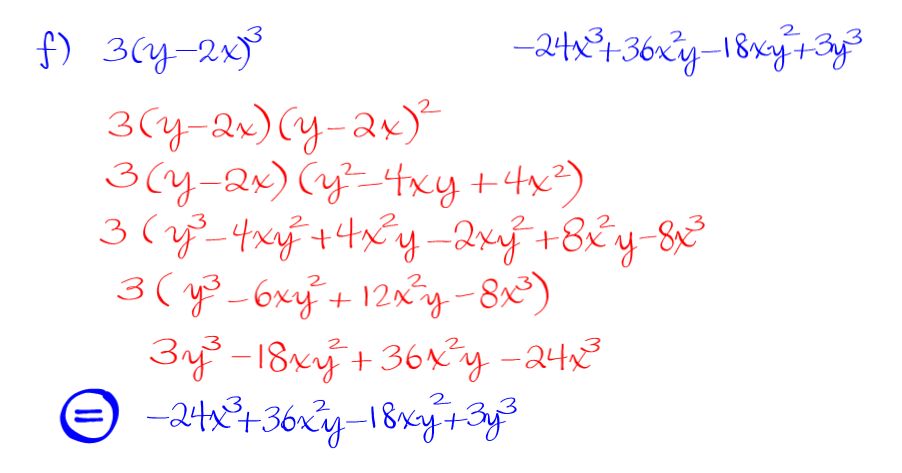 f) 3(y-2x)³ -24x³+36x²y-18xy²+3y³
3(y-2x)(y-2x)²
3(y-2x)(y²-4xy+4x²)
3(y³-4xy²+4x²y-2xy²+8x²y-8x³
3(y³-6xy²+12x²y-8x³)
3y³-18xy²+36x²y-24x³
= -24x³+36x²y-18xy²+3y³